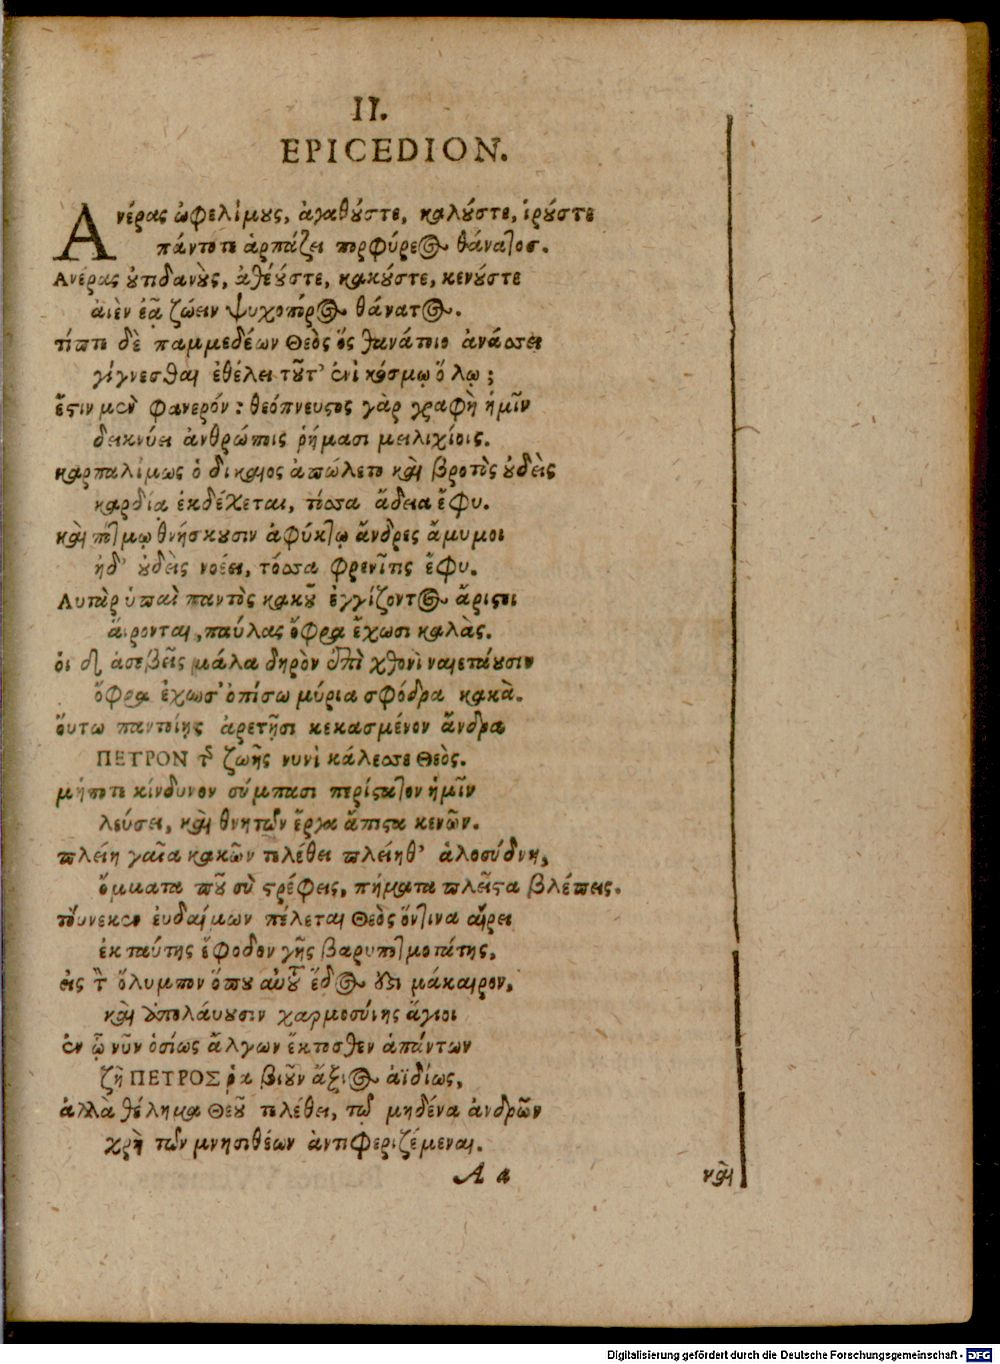 II.
EPICEDION.
Ανέρας ὠφελίμους, ἀγαθούστε, καλούστε, ἱρούστε
πάντοτε ἁρπάζει πορφύρεος θάνατος.
Ανέρας οὐτιδανοὺς, ἀθέούστε, κακούστε, κενούστε
αἰὲν ἐᾷ ζώειν ψυχοπόρος θάνατος.
τίπτε δὲ παμμεδέων Θεὸς ὅς θανάτοιο ἀνάσσει
γίγνεσθαι ἐθέλει τοῦτ' ἐνὶ κόσμῳ ὅλῳ;
ἔστιν μὲν φανερόν: θεόπνευστος γὰρ γραφὴ ἡμῖν
δεικνύει ἀνθρώποις ῥήμασι μειλιχίοις.
καρπαλίμως ὁ δικαιος ἀπώλετο καὶ βροτὸς οὐδεὶς
καρδία ἐκδέχεται, τόσσα ἄδεια ἔφυ.
καὶ πότμῳ θνήσκουσιν ἀφύκτῳ ἄνδρες ἄμυμοι
ἠδ' οὐδεὶς νοέει, τόσσα φρενῖτις ἔφυ.
Αυτὰρ ὑπαὶ παντὸς κακοῦ ἐγγίζοντος ἄριστοι
ἄιρονται, παύλας ὄφρα ἔχωσι καλὰς.
ὁι δ' ἀσεβεῖς μάλα δηρὸν ἐπὶ χθονὶ ναιετάουσιν
ὄφρα ἔχωσ' ὀπίσω μύρια σφόδρα κακὰ.
ὅυτω παντοίης ἀρετῇσι κεκασμένον ἄνδρα
ΠΕΤΡΟΝ τῆς ζωῆς νυνὶ κάλεσσε Θεὸς.
μήποτε κίνδυνον σύμπασι περίστατον ἡμῖν
λεύσει, καὶ θνητῶν ἔργα ἄπιστα κενῶν.
πλείη γαῖα κακῶν τελέθει πλείηθ' ἁλοσύδνη,
ὄμματα ποῦ σὺ στρέφεις, πήματα πλεῖστα βλέπεις.
τοὔνεκεν ἐυδαίμων πέλεται Θεὸς ὅντινα αἴρει
ἐκ ταύτης ἔφοδον γῆς βαρυποτμοτάτης,
ἐις τὸν ὄλυμπον ὅπου αὐτοῦ ἕδος ἐστὶ μάκαιρον,
καὶ ἀπολάυουσιν χαρμοσύνης ἅγιοι
ἐν ᾧ νῦν ὁσίως ἄλγων ἔκτοσθεν ἁπάντων
ζῇ ΠΕΤΡΟΣ ῥα βιοῦν ἄξιος ἀϊδίως,
ἀλλὰ θέλημα Θεοῦ τελέθει, τῷ μηδένα ἀνδρῶν
χρὴ τῶν μνησιθέων ἀντιφεριζέμεναι.
A a
καὶ
Digitalisierung gefördert durch die Deutsche Forschungsgemeinschaft - DFG